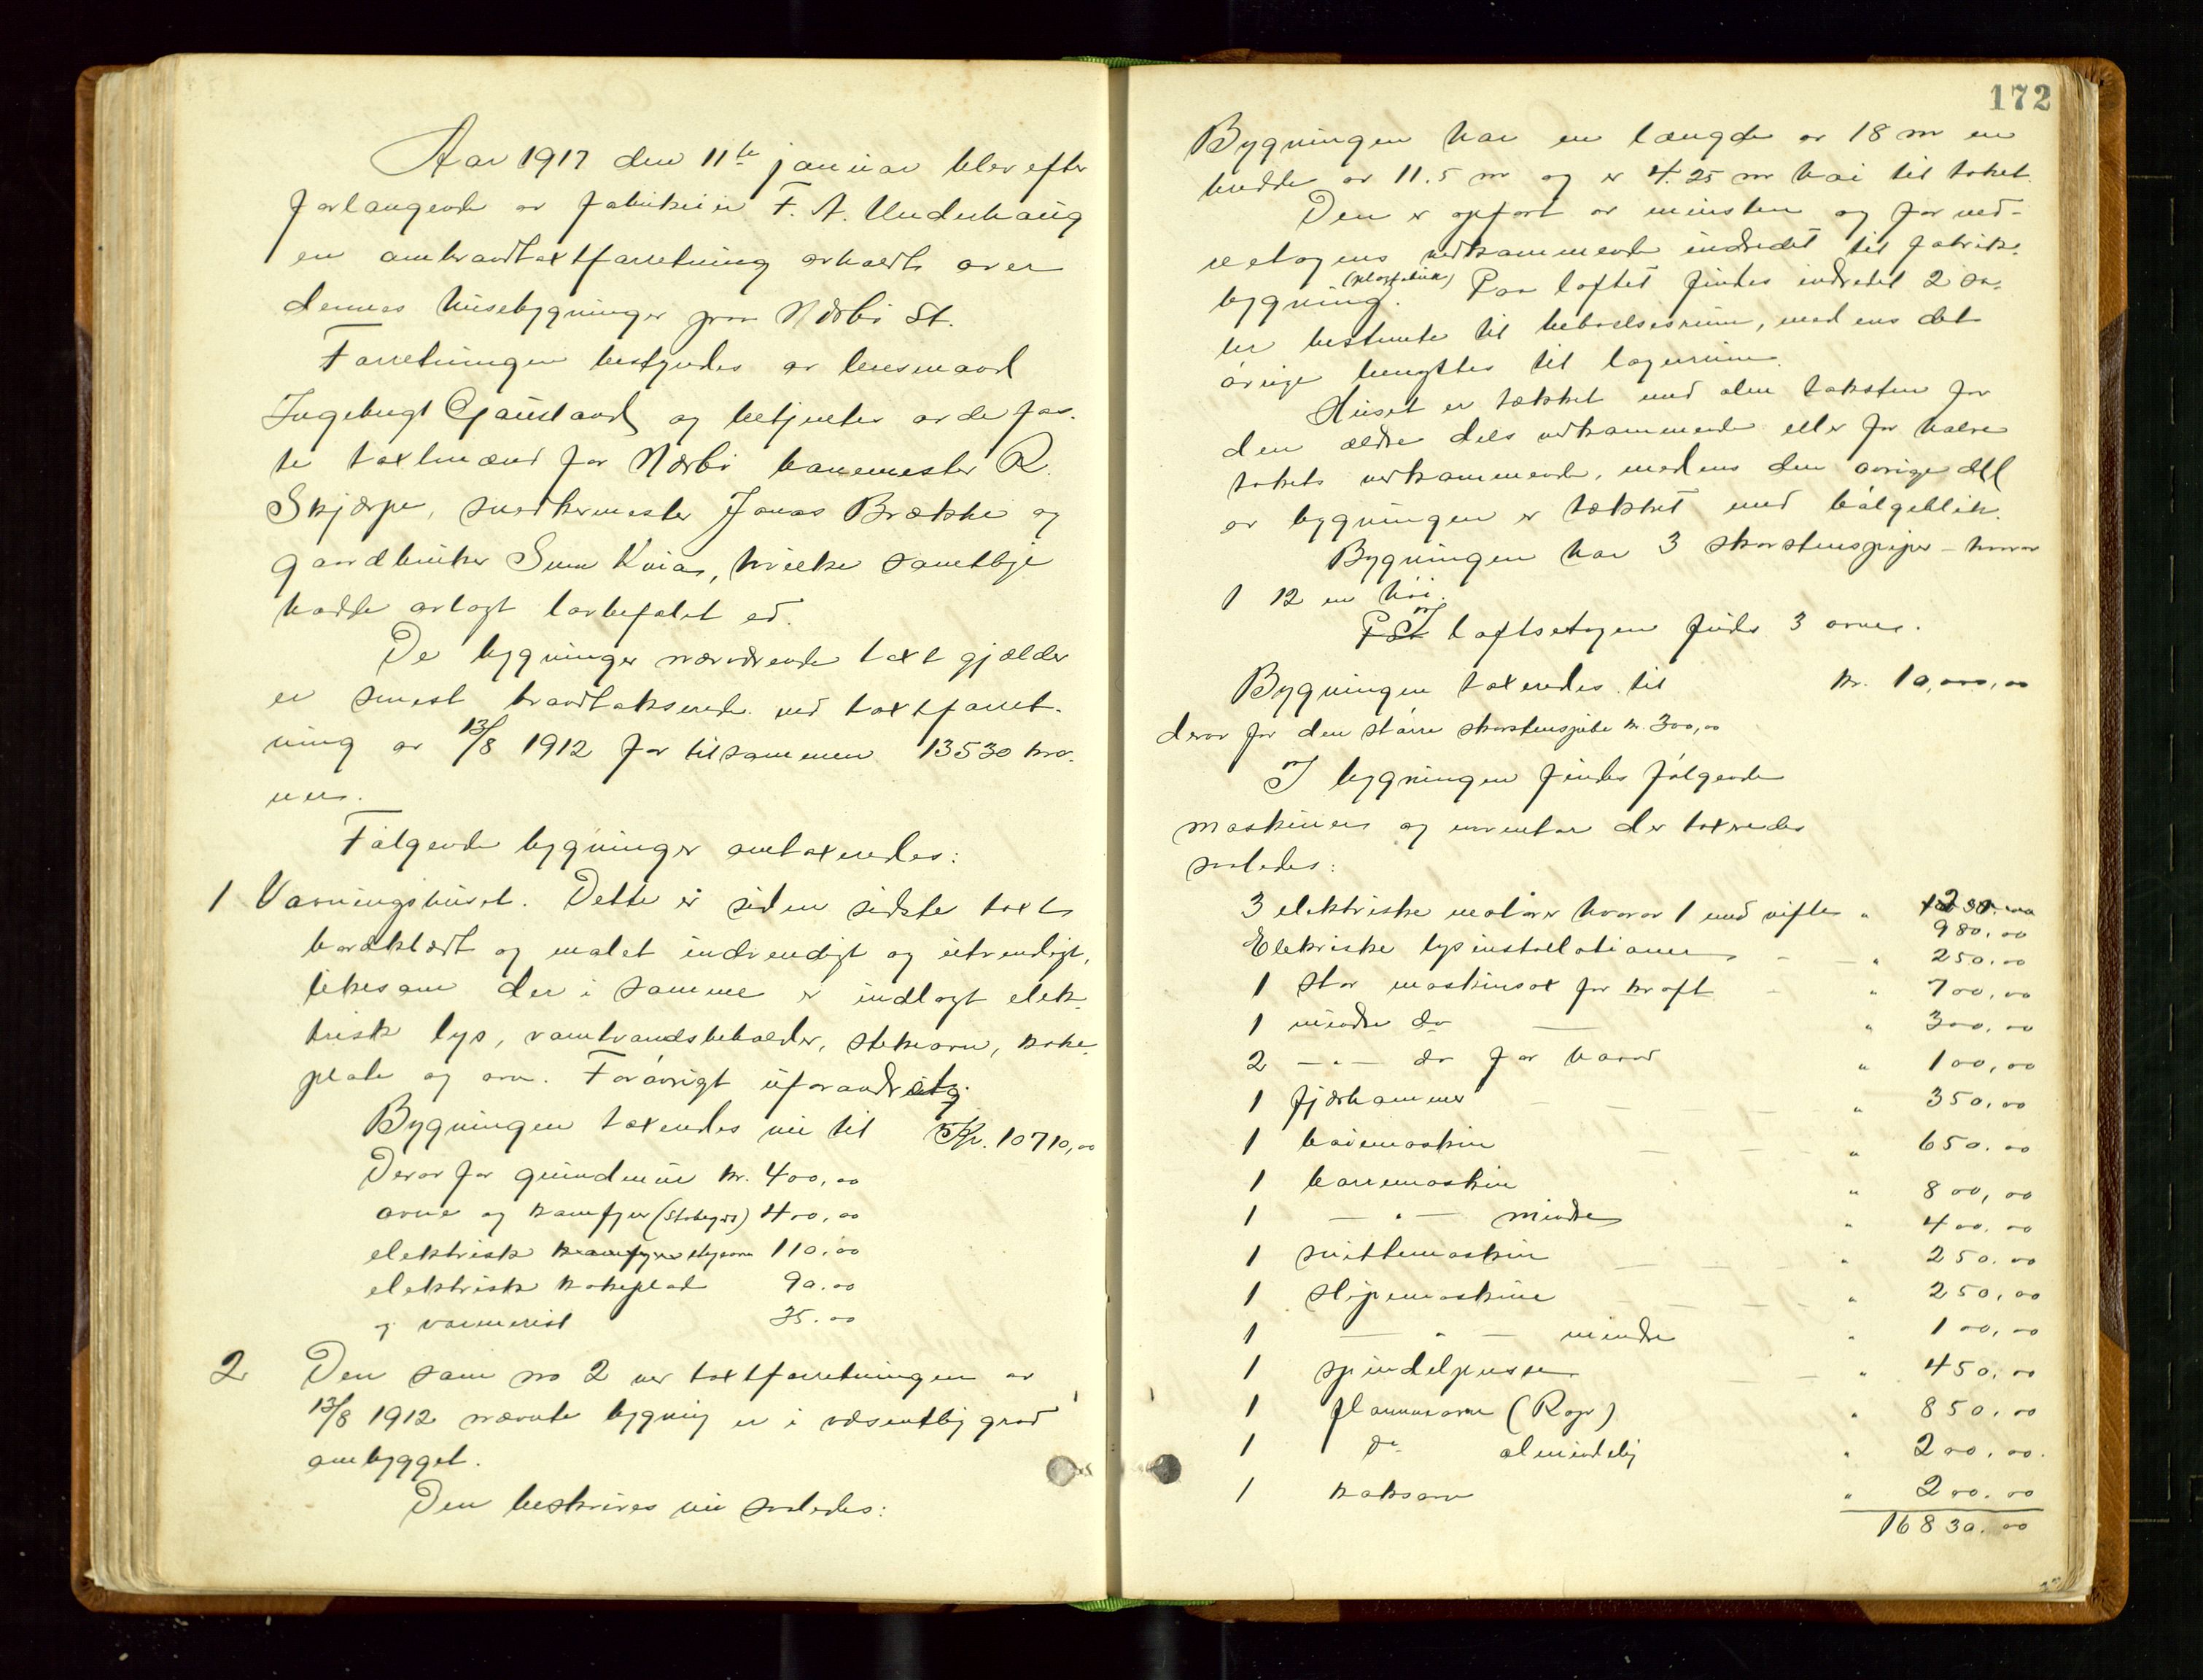 Aar 1917 den 11te januar blev efter
forlangende av fabrikeier F. A. Underhaug
en ombrandtaxtforretning avholdt over
dennes husebygninger paa Nærbø St.
Forretningen bestyrdes av lensmand
Ingebregt Gaustand og betjentes av de fas-
te taxtmænd for Nærbø banemester R.
Skjærpe, snedkermester Jonas Brække og
gaardbruker Sven Kvia, hvilke samtlige
hadde avlagt lovbefalet ed.
De bygninger nærværende taxt gjælder
er senest brandtakserede ved taxtforret-
ning av 13/8 1912 for tilsammen 13530 kro-
ner.
Følgende bygninger omtaxeredes:
1 Vaaningshuset. Dette er siden sidste taxt
bordklædt og malet indvendigt og utvendigt,
likesom der i samme er indlagt elek-
trisk lys, varmtvandsbeholder, stekeovn, koke-
plate og ovn. Forøvrigt uforandret.
Bygningen taxeredes nu til Kr. 10710,00
Derav for grundmur kr. 400,00
ovne og komfyr (Støbegods) 400,00
elektrisk komfyr stegeovn 110.00
elektrisk kokeplade 90.00
og varmerist 35.00
2 Den som no 2 ved taxtforretningen av
13/8 1912 nævnte bygning er i væsentlig grad
ombygget.
Den beskrives nu saaledes:
172
Bygningen har en længde av 18 m en
bredde av 11.5 m og er 4.25 m høi til taket.
Den er opført av mursten og for ned-
reetagens vedkommende indredet til fabrik-
bygning. (plogfabrik) Paa loftet findes indredet 2 sa-
ler bestemte til beboelsesrum, medens det
øvrige benyttes til lagerrum.
Huset er tækket med alm taksten for
den ældre dels vedkommende eller for halve
takets vedkommende, medens den øvrige del
av bygningen er tækket med bølgeblik.
Bygningen har 3 skorstenspiper – hvorav
1 12 m høi.
I loftsetagen findes 3 ovner.
Bygningen taxeredes til kr. 10,000,00
derav for den større skorstenspibe kr. 300,00
I bygningen findes følgende
maskiner og inventar der taxeredes
saaledes:
3 elektriske motorer hvorav 1 med vifte " 980.00
Elekriske lysinstallationer - — " 250.00
1 stor maskinsax for kraft - " 700,00
1 mindre do — " 300.00
2 — " — do for haand " 100,00
1 fjærhammer — — — " 350.00
1 høiemaskin — — — " 650.00
1 boremaskin " 800,00
1 — " — mindre " 400.00
1 snittemaskin — — — " 250.00
1 slipemaskine — — — " 250,00
1 — " — mindre " 100,00
1 spindelpresse — — " 450,00
1 flammeovn (Rogv) " 850.00
1 do almindelig " 200,00.
1 koksovn " 200.00
16830.00